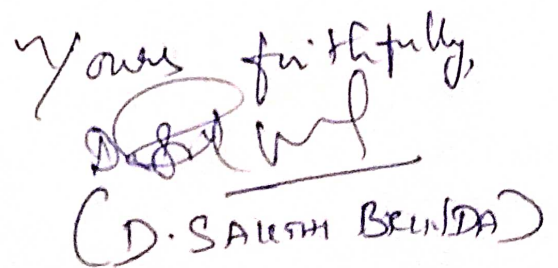 Yours faithfully,
(D. SAKTHI BRINDA)